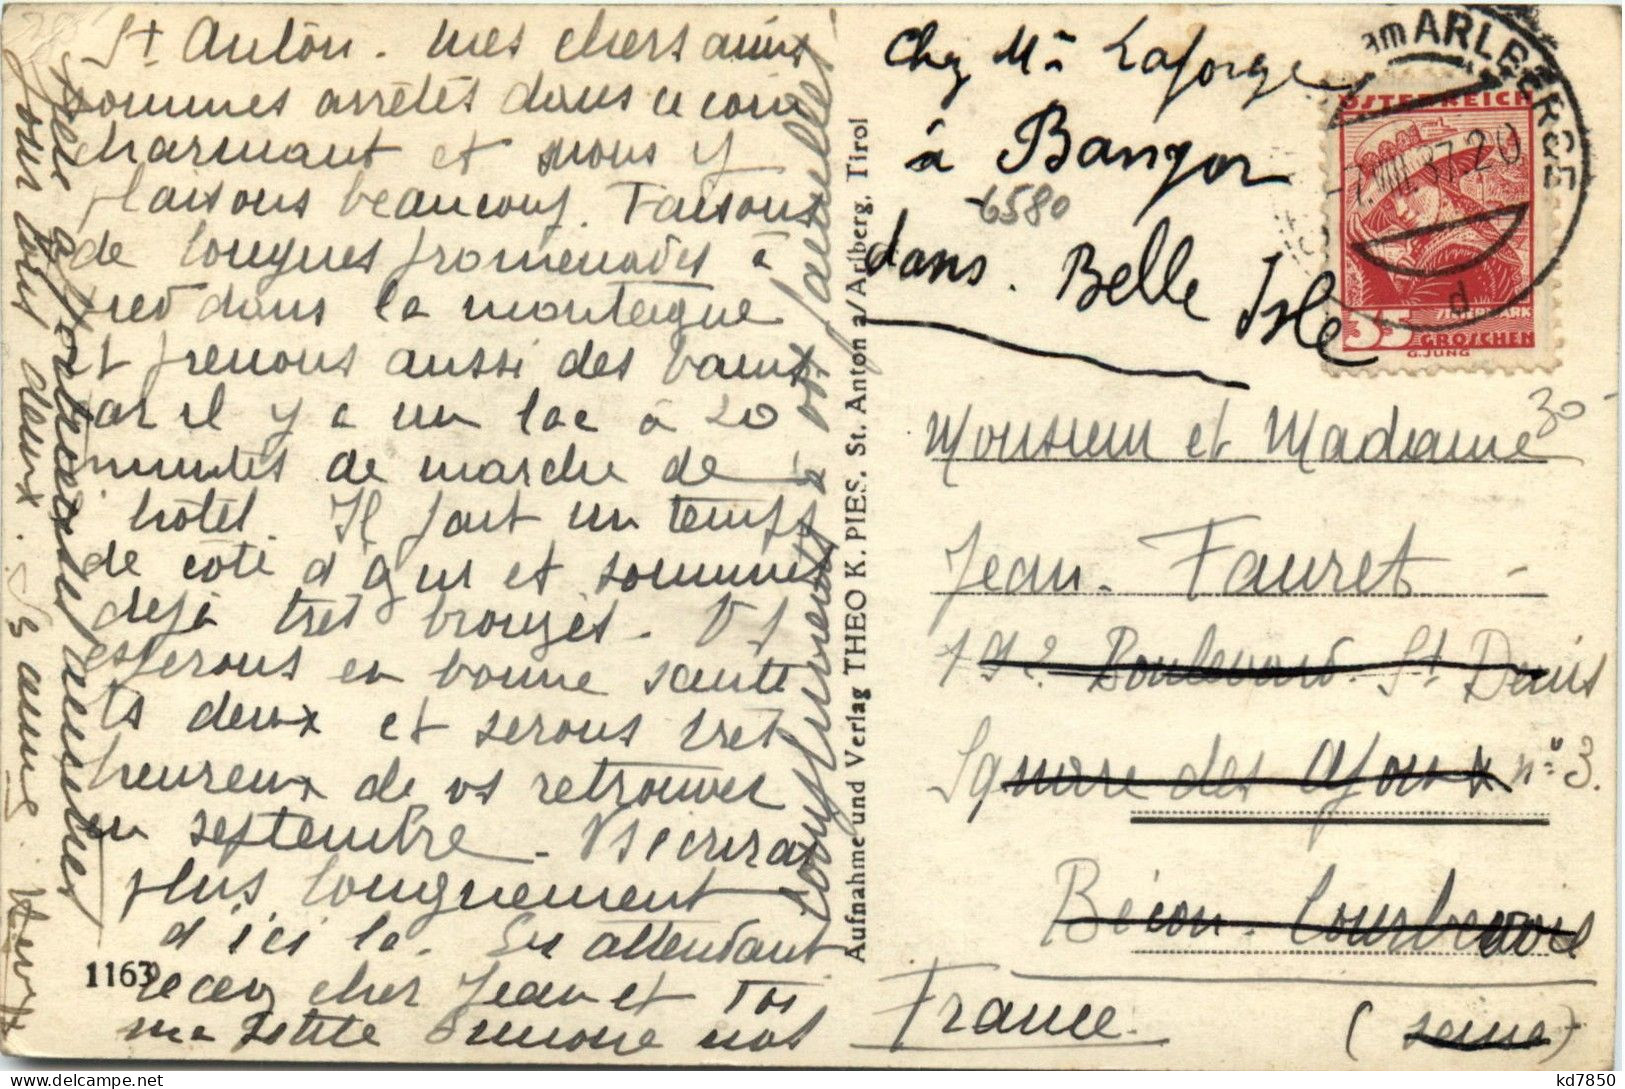 St Anton. Mes chers amis
sommes arrêtés dans ce coin
charmant et nous y
plaisons beaucoup. Faisons
de longues promenades à
pied dans la montagne
et prenons aussi des bains
car il y a un lac à 20
minutes de marche de
hôtel. Il fait un temps
de côte d'azur et sommes
dejà très bronzés. Vs
esperons en bonne santé
ts deux et serons très
heureux de vs retrouver
en septembre. Vs ecrirai
plus longuement
d'ici là. En attendant
recevez cher Jean et toi
ma petite Simone nos
pour vous deux. Vs aime
1163
Aufnahme und Verlag THEO K. PIES, St. Anton a/Arlberg, Tirol
Chez Mme Laforge
à Bangor
6580
dans Belle Isle
am ARLBERG
-7.VIII.37.20
d
ÖSTERREICH
STEIERMARK
35 GROSCHEN
G.JUNG
30
Monsieur et Madame
Jean Fauret
192 Boulevard St Denis
Square des Ajoux n° 3.
Bécon Courbevoie
France
(Seine)
kd7850